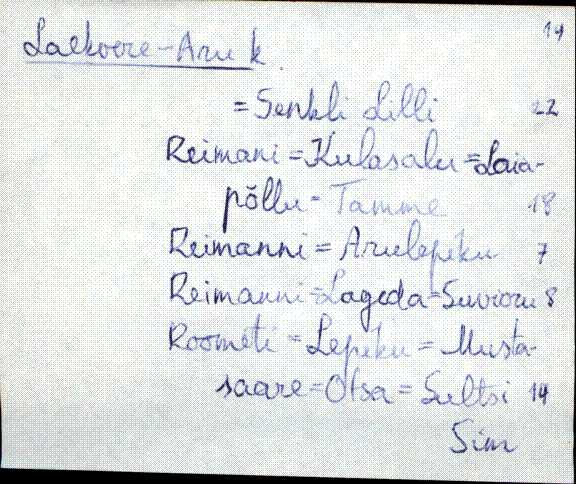 14
Laekvere-Aru k.
= Senkli Lilli 22
Reimani = Kulasalu = Laia-
põllu = Tamme 18
Reimanni = Arulepiku 7
Reimanni = Lageda = Suvioru 8
Roometi = Lepiku = Musta-
saare = Otsa = Sultsi 14
Sim